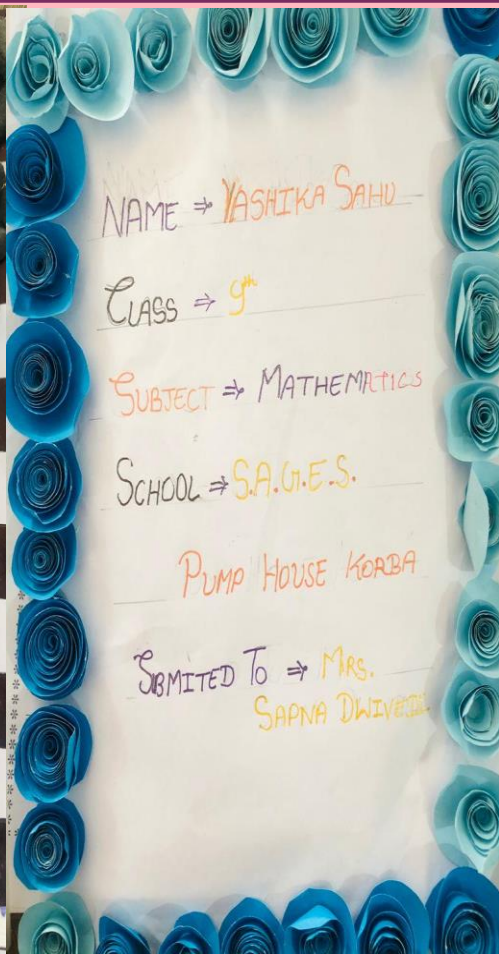 NAME ⇒ YASHIKA SAHU
CLASS ⇒ 9th
SUBJECT ⇒ MATHEMATICS
SCHOOL ⇒ S.A.G.E.S.
PUMP HOUSE KORBA
SBMITED TO ⇒ MRS.
SAPNA DWIVEDI